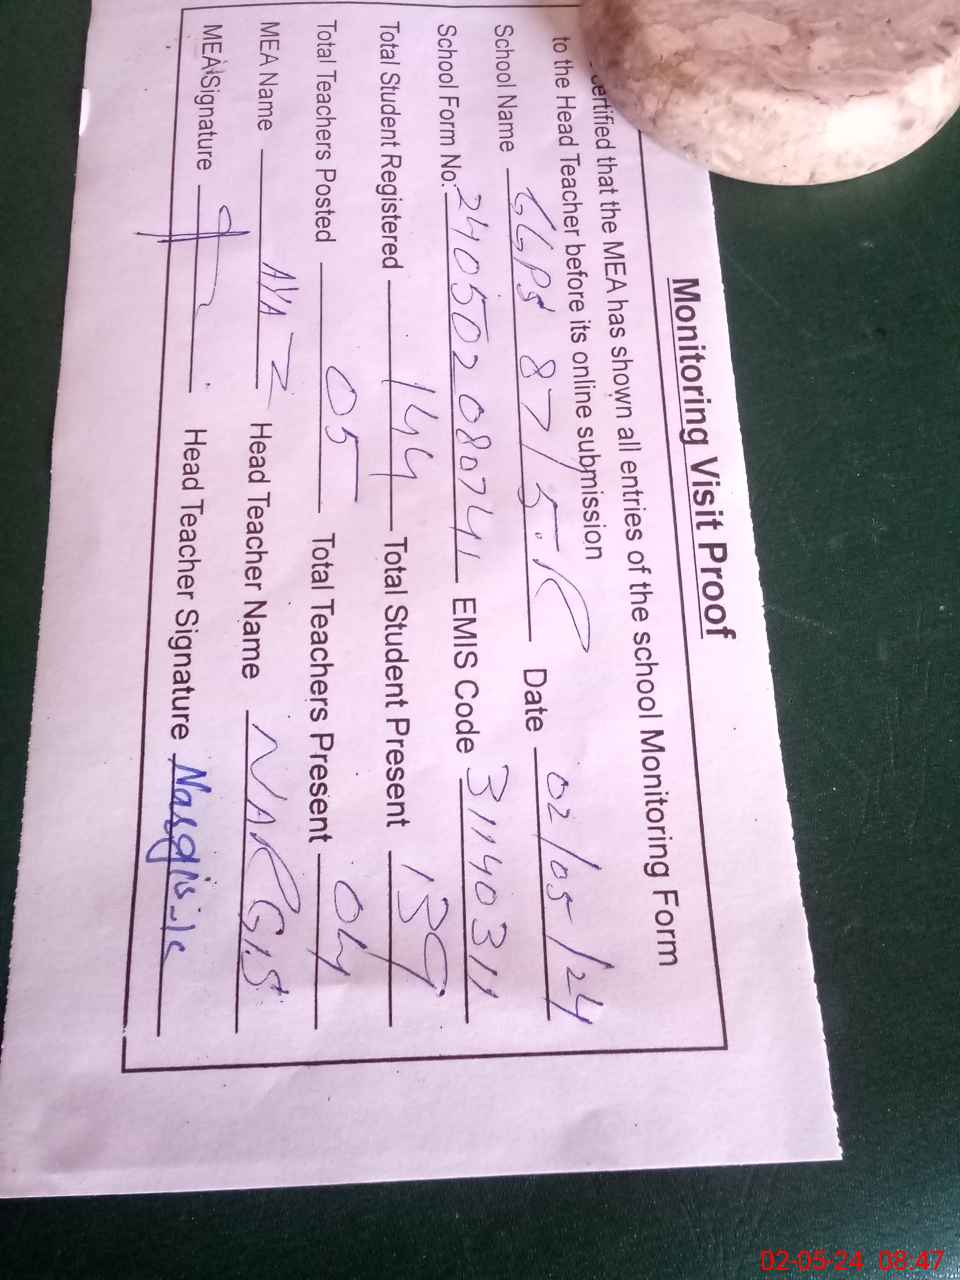 Monitoring Visit Proof
certified that the MEA has shown all entries of the school Monitoring Form
to the Head Teacher before its online submission
School Name GGPS 87/5.R Date 02/05/24
School Form No. 240502080741 EMIS Code 31140311
Total Student Registered 144 Total Student Present 139
Total Teachers Posted 05 Total Teachers Present 04
MEA Name Head Teacher Name NARGIS
MEA Signature Head Teacher Signature Nargis
02-05-24 08:47